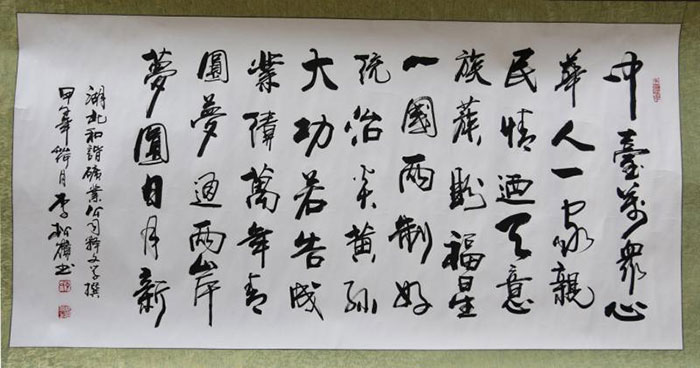 中臺萬眾心
華人一家親
民情迺天意
族蔟福星
一國兩制好
統治炎黃孫
大功若告成
業績萬年青
圓夢通兩岸
夢圓日月新
湖北和諧礦業公司文學撰
甲午年月李松書